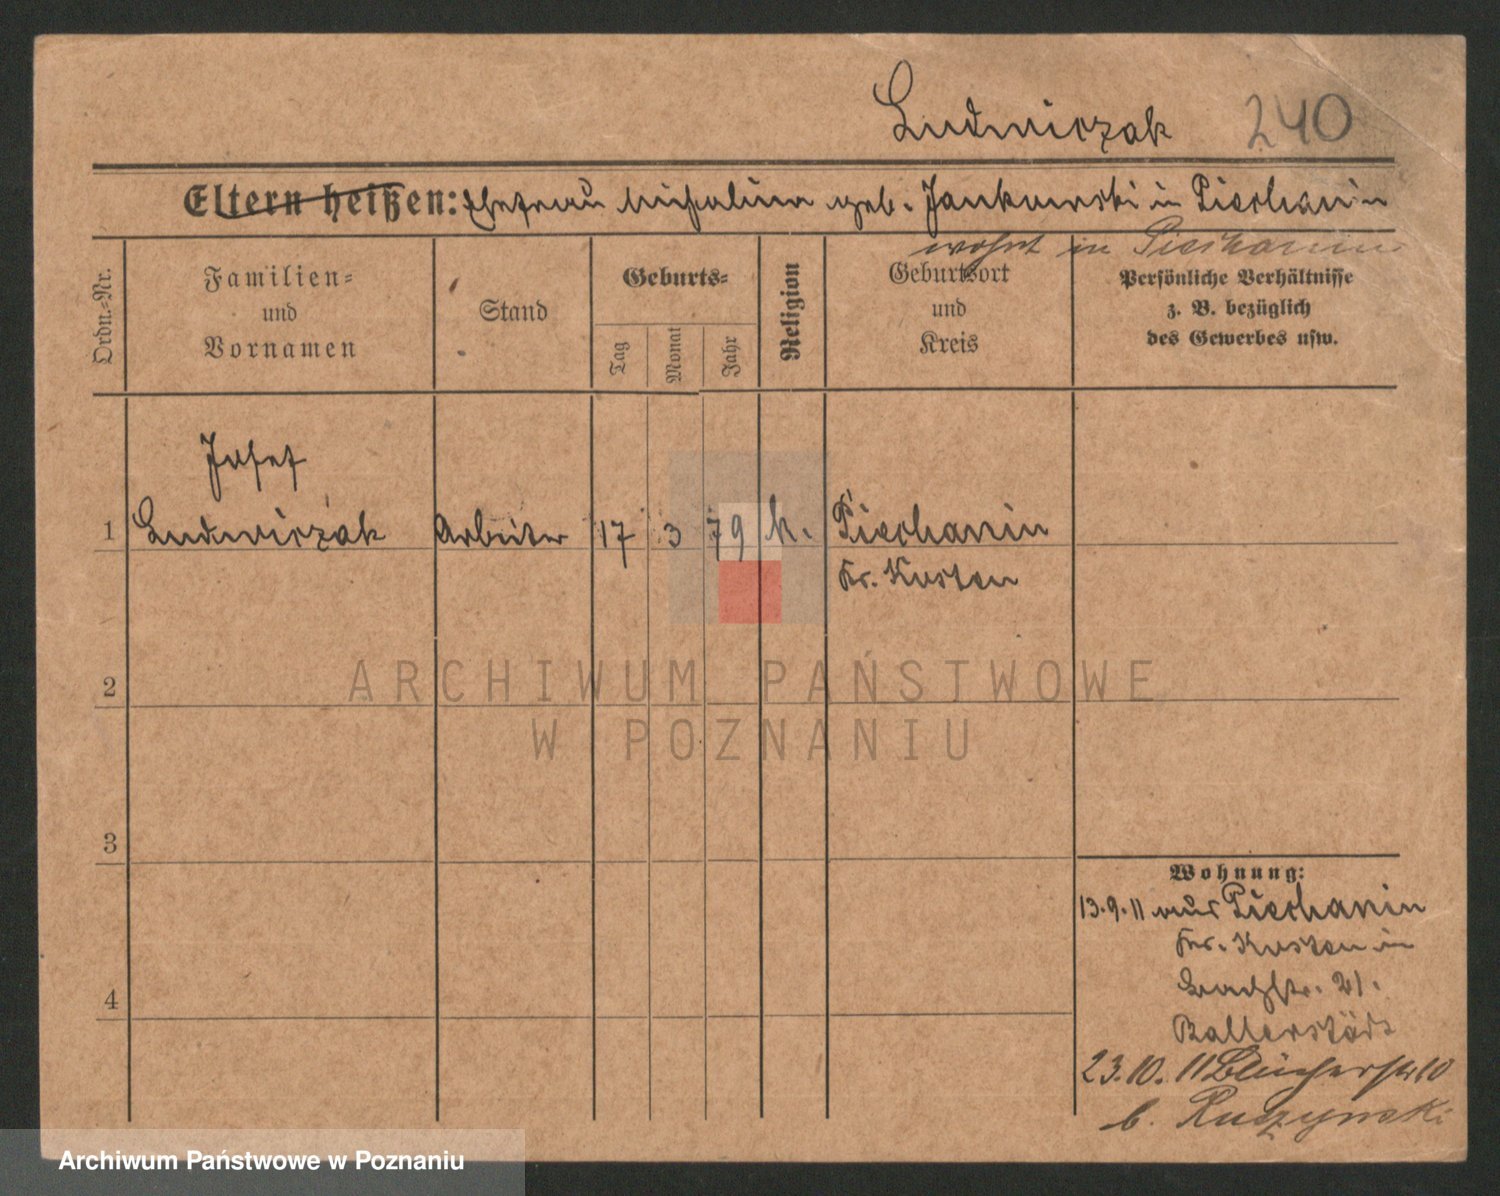 Ludwiczak 240
Eltern heißen: Ehefrau Michalina geb. Jankowski in Piechanin
wohnt in Piechanin
Ordn.-Nr.
Familien-
und
Vornamen
Stand
Geburts-
Tag
Monat
Jahr
Religion
Geburtsort
und
Kreis
Persönliche Verhältnisse
z. B. bezüglich
des Gewerbes usw.
Josef
1 Ludwiczak Arbeiter 17 3 79 k. Piechanin
Kr. Kosten
2
3
4
Wohnung:
13.9.11 aus Piechanin
Kr. Kosten in
21.
Ballerstädt
23.10.11 Blücherstr 10
b. Ruczynski
ARCHIWUM PAŃSTWOWE
W POZNANIU
Archiwum Państwowe w Poznaniu